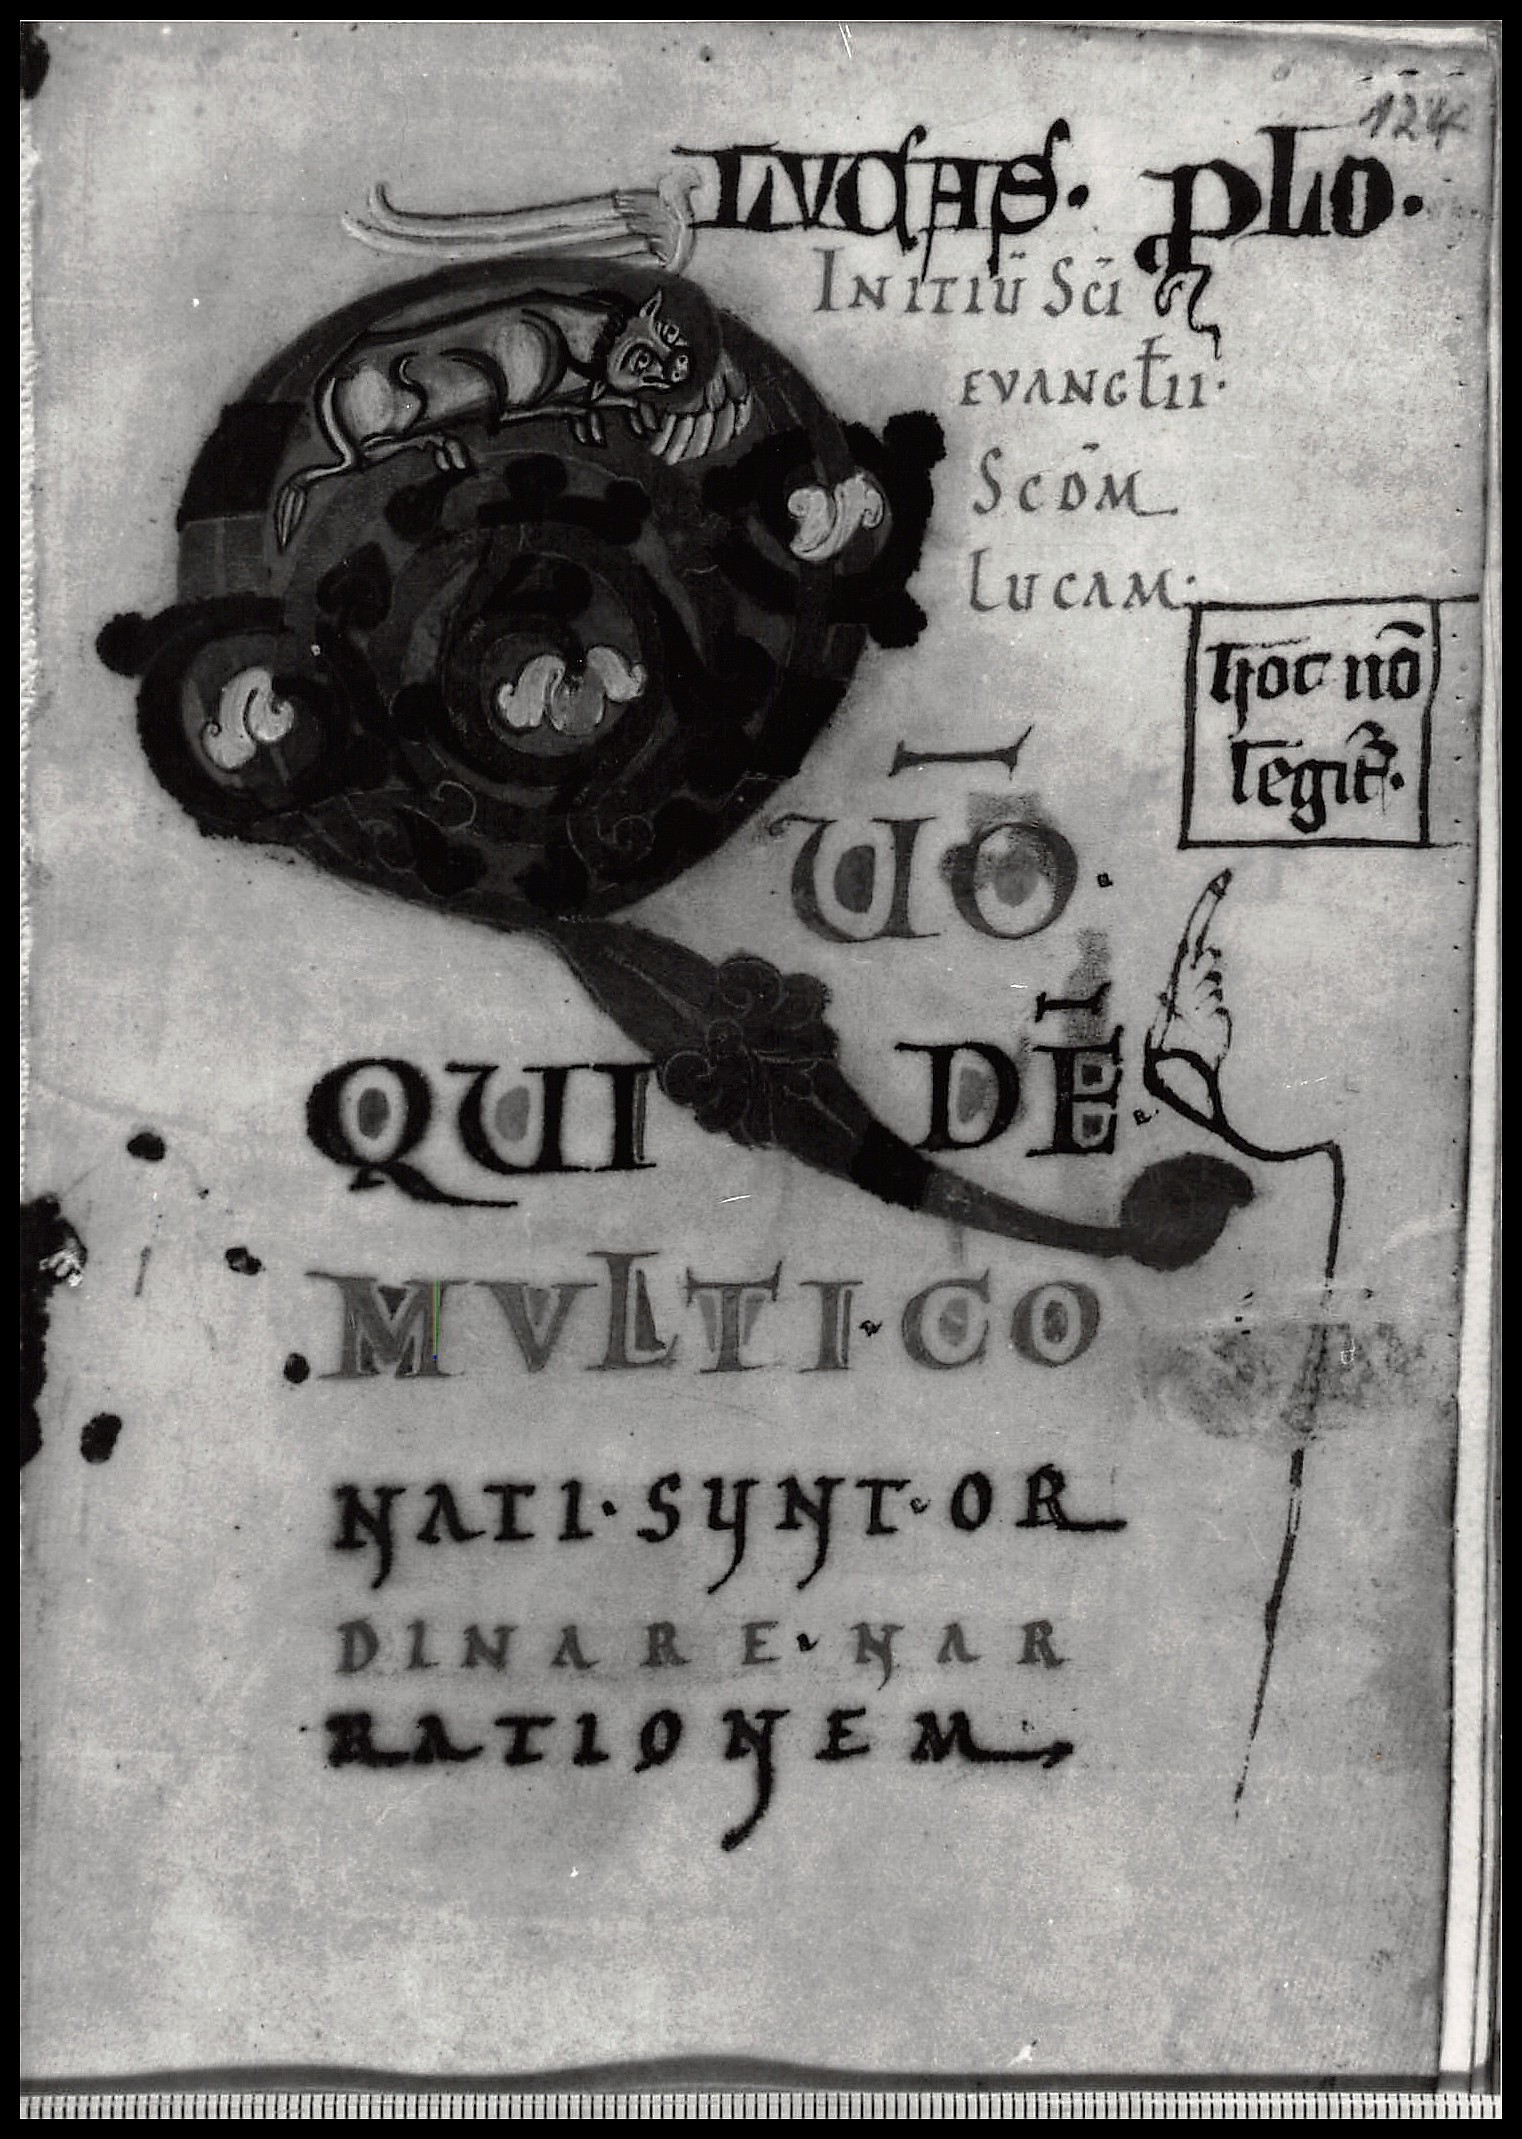 124
LUCAS. PLO.
INITIŪ SC̄I
EVANGŁII·
SCDM̄
LUCAM·
hoc nō
legit᷑.
QUŌ.
QUIDĒ
MVLTI·CO
NATI·SUNT·OR
DINARE·NAR
RATIONEM